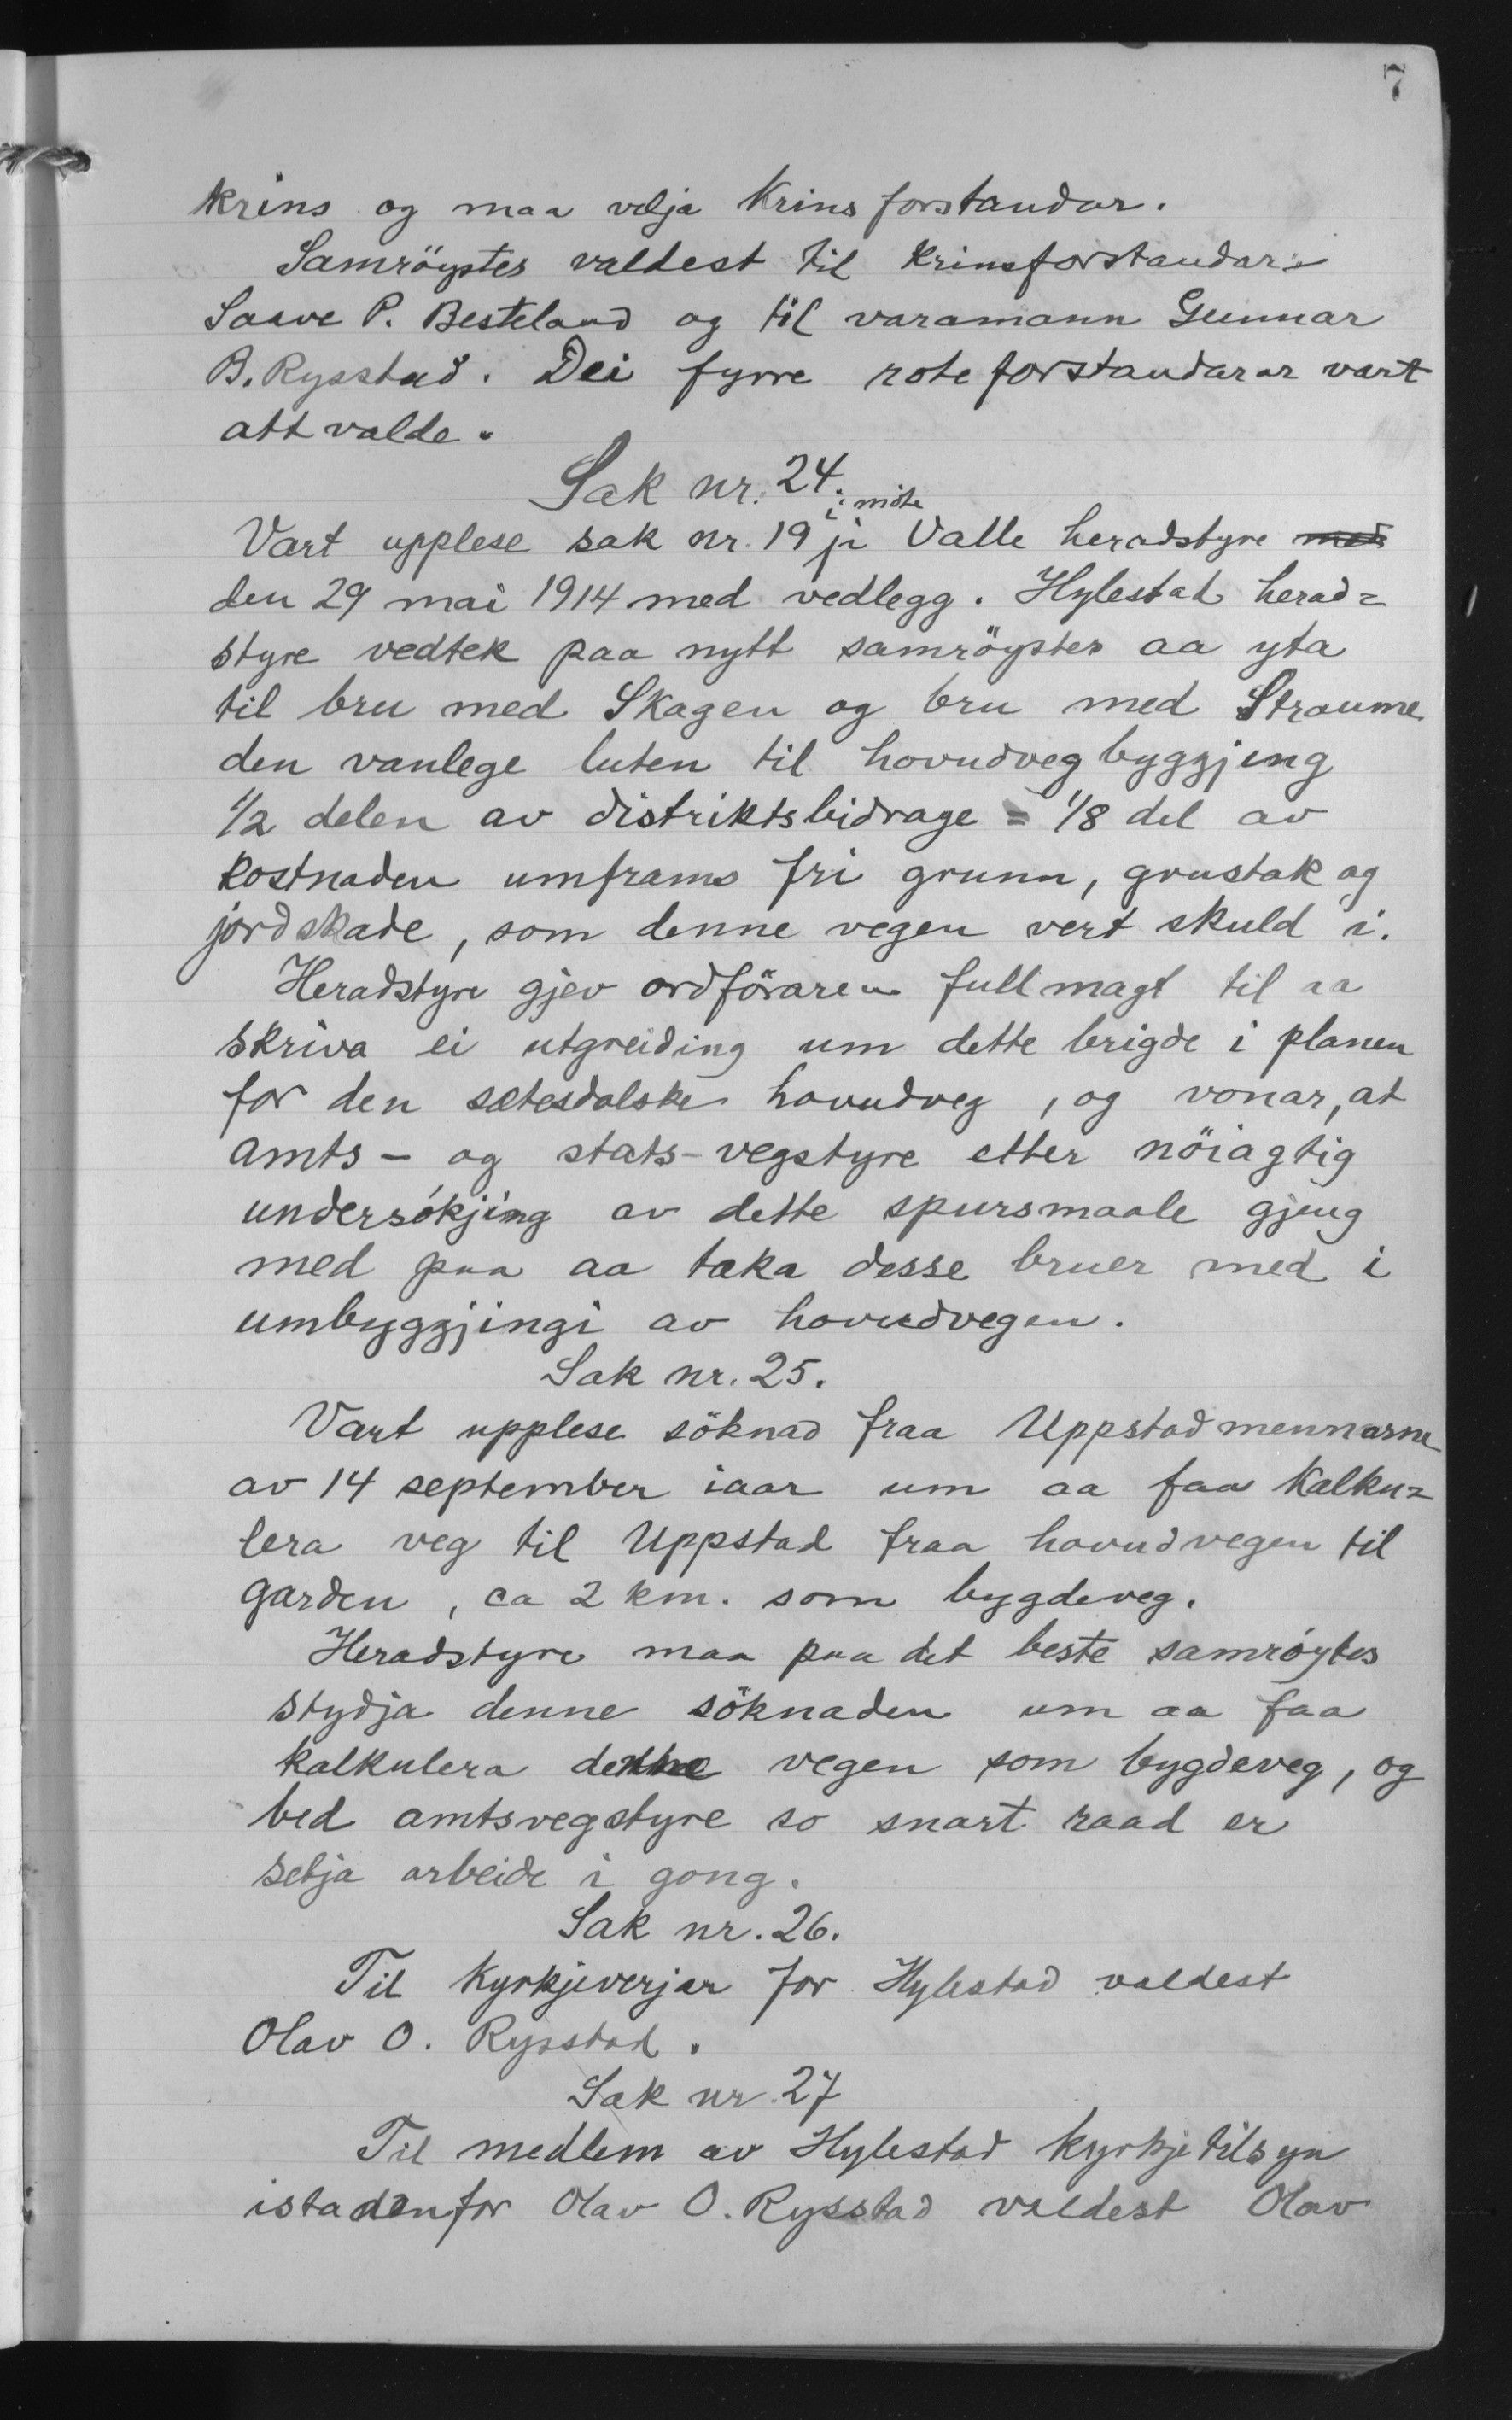 7
krins og maa velja Krinsforstandar.
Samröystes valdest til Krinsforstandar:
Saave P. Besteland og til varamann Gunnar
B. Rysstad. Dei fyrre roteforstandarar vart
attvalde.
Sak nr. 24.
Vart upplese sak nr. 19 i möte i Valle heradstyre med
den 29 mai 1914 med vedlegg. Hylestad herad=
styre vedtek paa nytt samröystes aa yta
til bru med Skagen og bru med Straume
den vanlege luten til hovudvegbyggjing
1/2 delen av distriktsbidrage = 1/8 del av
kostnaden umframs fri grunn, grustak og
jordskade, som denne vegen vert skuld i.
Heradstyre gjev ordföraren fullmagt til aa
skriva ei utgreiding um dette brigde i planen
for den setesdalske hovudveg, og vonar, at
amts- og stats-vegstyre etter nöiagtig
undersökjing av dette spursmaale gjeng
med paa aa taka desse bruer med i
umbyggjingi av hovudvegen.
Sak nr. 25.
Vart upplese söknad fraa Uppstadmennarne
av 14 september iaar um aa faa Kalku=
lera veg til Uppstad fraa hovudvegen til
garden, ca 2 km. som bygdeveg.
Heradstyre maa paa det beste samröytes
stydja denne söknaden um aa faa
kalkulera denne vegen som bygdeveg, og
bed amtsvegstyre so snart raad er
setja arbeide i gong.
Sak nr. 26.
Til Kyrkjeverjar for Hylestad valdest
Olav O. Rysstad.
Sak nr. 27
Til medlem av Hylestad kyrkjetilsyn
istadenfor Olav O. Rysstad valdest Olav